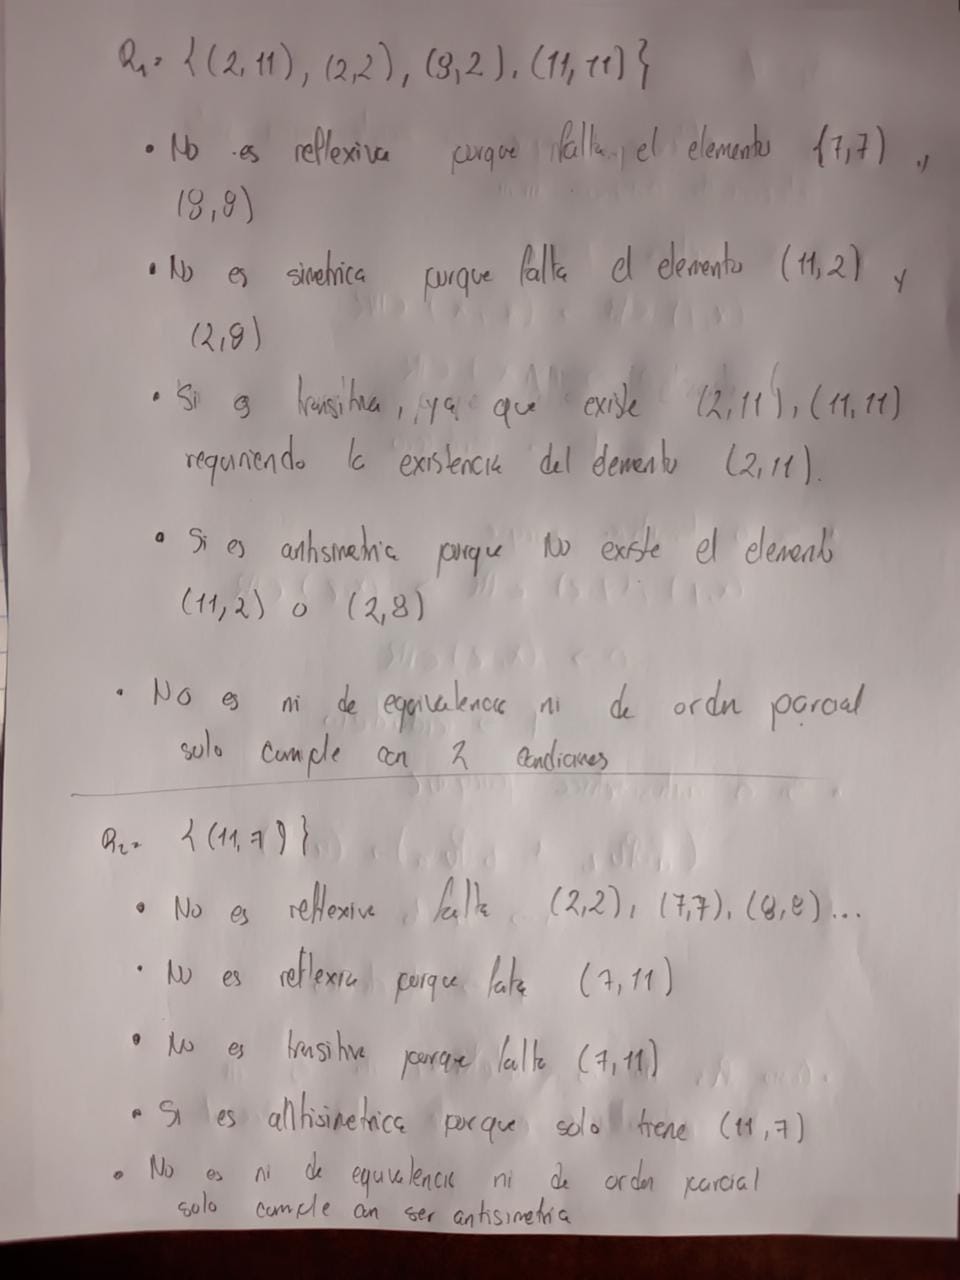 R₁= {(2,11), (2,2), (8,2), (11,11)}
• No es reflexiva porque falta el elemento {7,7) y
(8,8)
• No es simetrica porque falta el elemento (11,2) y
(2,8)
• Si es transitiva, ya que existe (2,11), (11,11)
requiriendo la existencia del elemento (2,11).
• Si es antismetria porque No existe el elemento
(11,2) o (2,8)
• No es ni de equivalencia ni de orden parcial
solo cumple con 2 condiciones
R₂= {(11,7)}
• No es reflexiva falta (2,2), (7,7), (8,8)...
• No es reflexia porque falta (7,11)
• No es transitiva porque falta (7,11)
• Si es antisimetrica porque solo tiene (11,7)
• No es ni de equivalencia ni de orden parcial
solo cumple con ser antisimetria